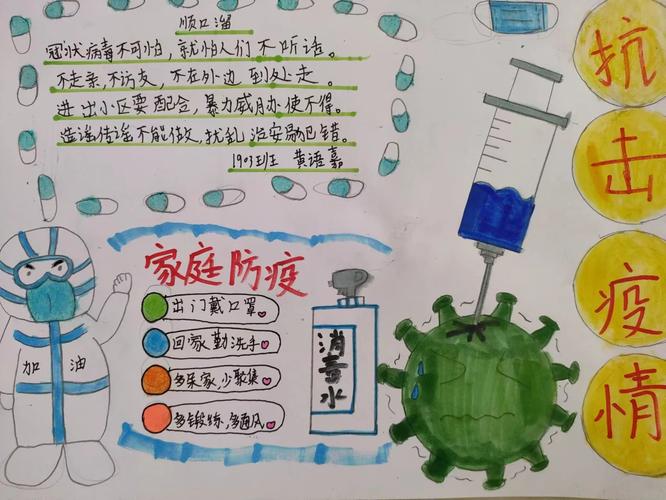 顺口溜
冠状病毒不可怕，就怕人们不听话。
不走亲，不访友，不在外边到处走。
进出小区要配合，暴力威胁使不得。
造谣传谣不能做，扰乱治安易犯错。
1903班 黄语嘉
抗击疫情
家庭防疫
出门戴口罩
回家勤洗手
多呆家，少聚集
多锻练，多通风
加油
消毒水